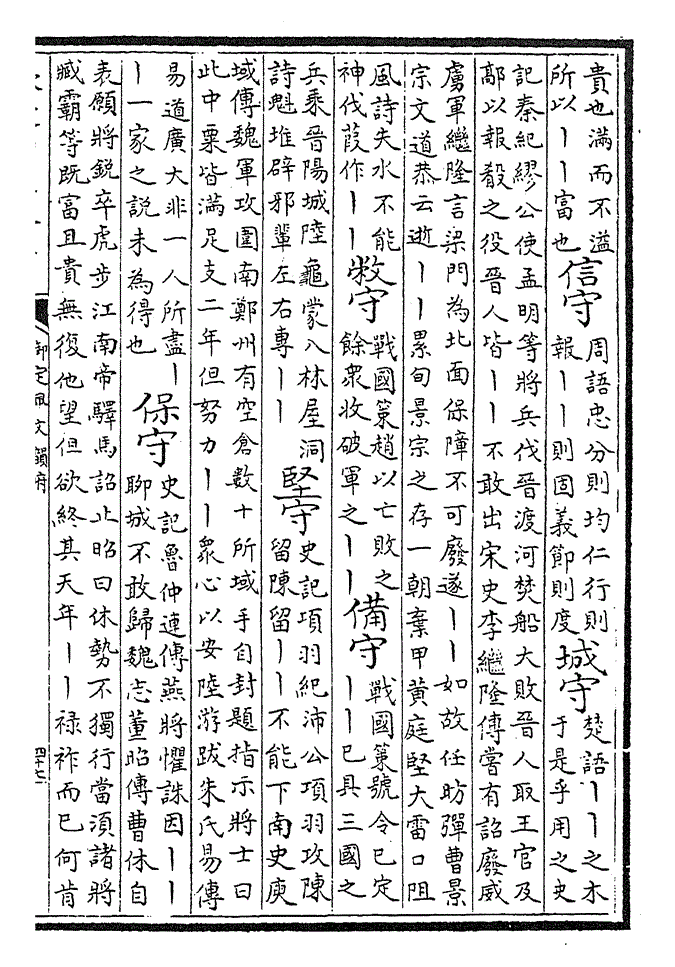 貴也滿而不溢
所以丨丨富也
信守
周語忠分則均仁行則
報丨丨則固義節則度
城守
楚語丨丨之木
于是乎用之史
記秦紀繆公使孟明等將兵伐晉渡河焚船大敗晉人取王官及
鄗以報殽之役晉人皆丨丨不敢出宋史李繼隆傳嘗有詔廢威
虜軍繼隆言梁門為北面保障不可廢遂丨丨如故任昉彈曹景
宗文道恭云逝丨丨累旬景宗之存一朝棄甲黄庭堅大雷口阻
風詩失水不能
神伐葭作丨丨
救守
戰國策趙以亡敗之
餘衆收破軍之丨丨
備守
戰國策號令已定
丨丨已具三國之
兵乘晉陽城陸龜蒙入林屋洞
詩魁堆辟邪輩左右專丨丨
堅守
史記項羽紀沛公項羽攻陳
留陳留丨丨不能下南史庾
域傳魏軍攻圍南鄭州有空倉數十所域手自封題指示將士曰
此中粟皆滿足支二年但努力丨丨衆心以安陸游跋朱氏易傳
易道廣大非一人所盡丨
丨一家之説未為得也
保守
史記魯仲連傳燕將懼誅因丨丨
聊城不敢歸魏志董昭傳曹休自
表願將鋭卒虎步江南帝驛馬詔止昭曰休勢不獨行當須諸將
臧霸等既富且貴無復他望但欲終其天年丨丨禄祚而已何肯
御定佩文韻府